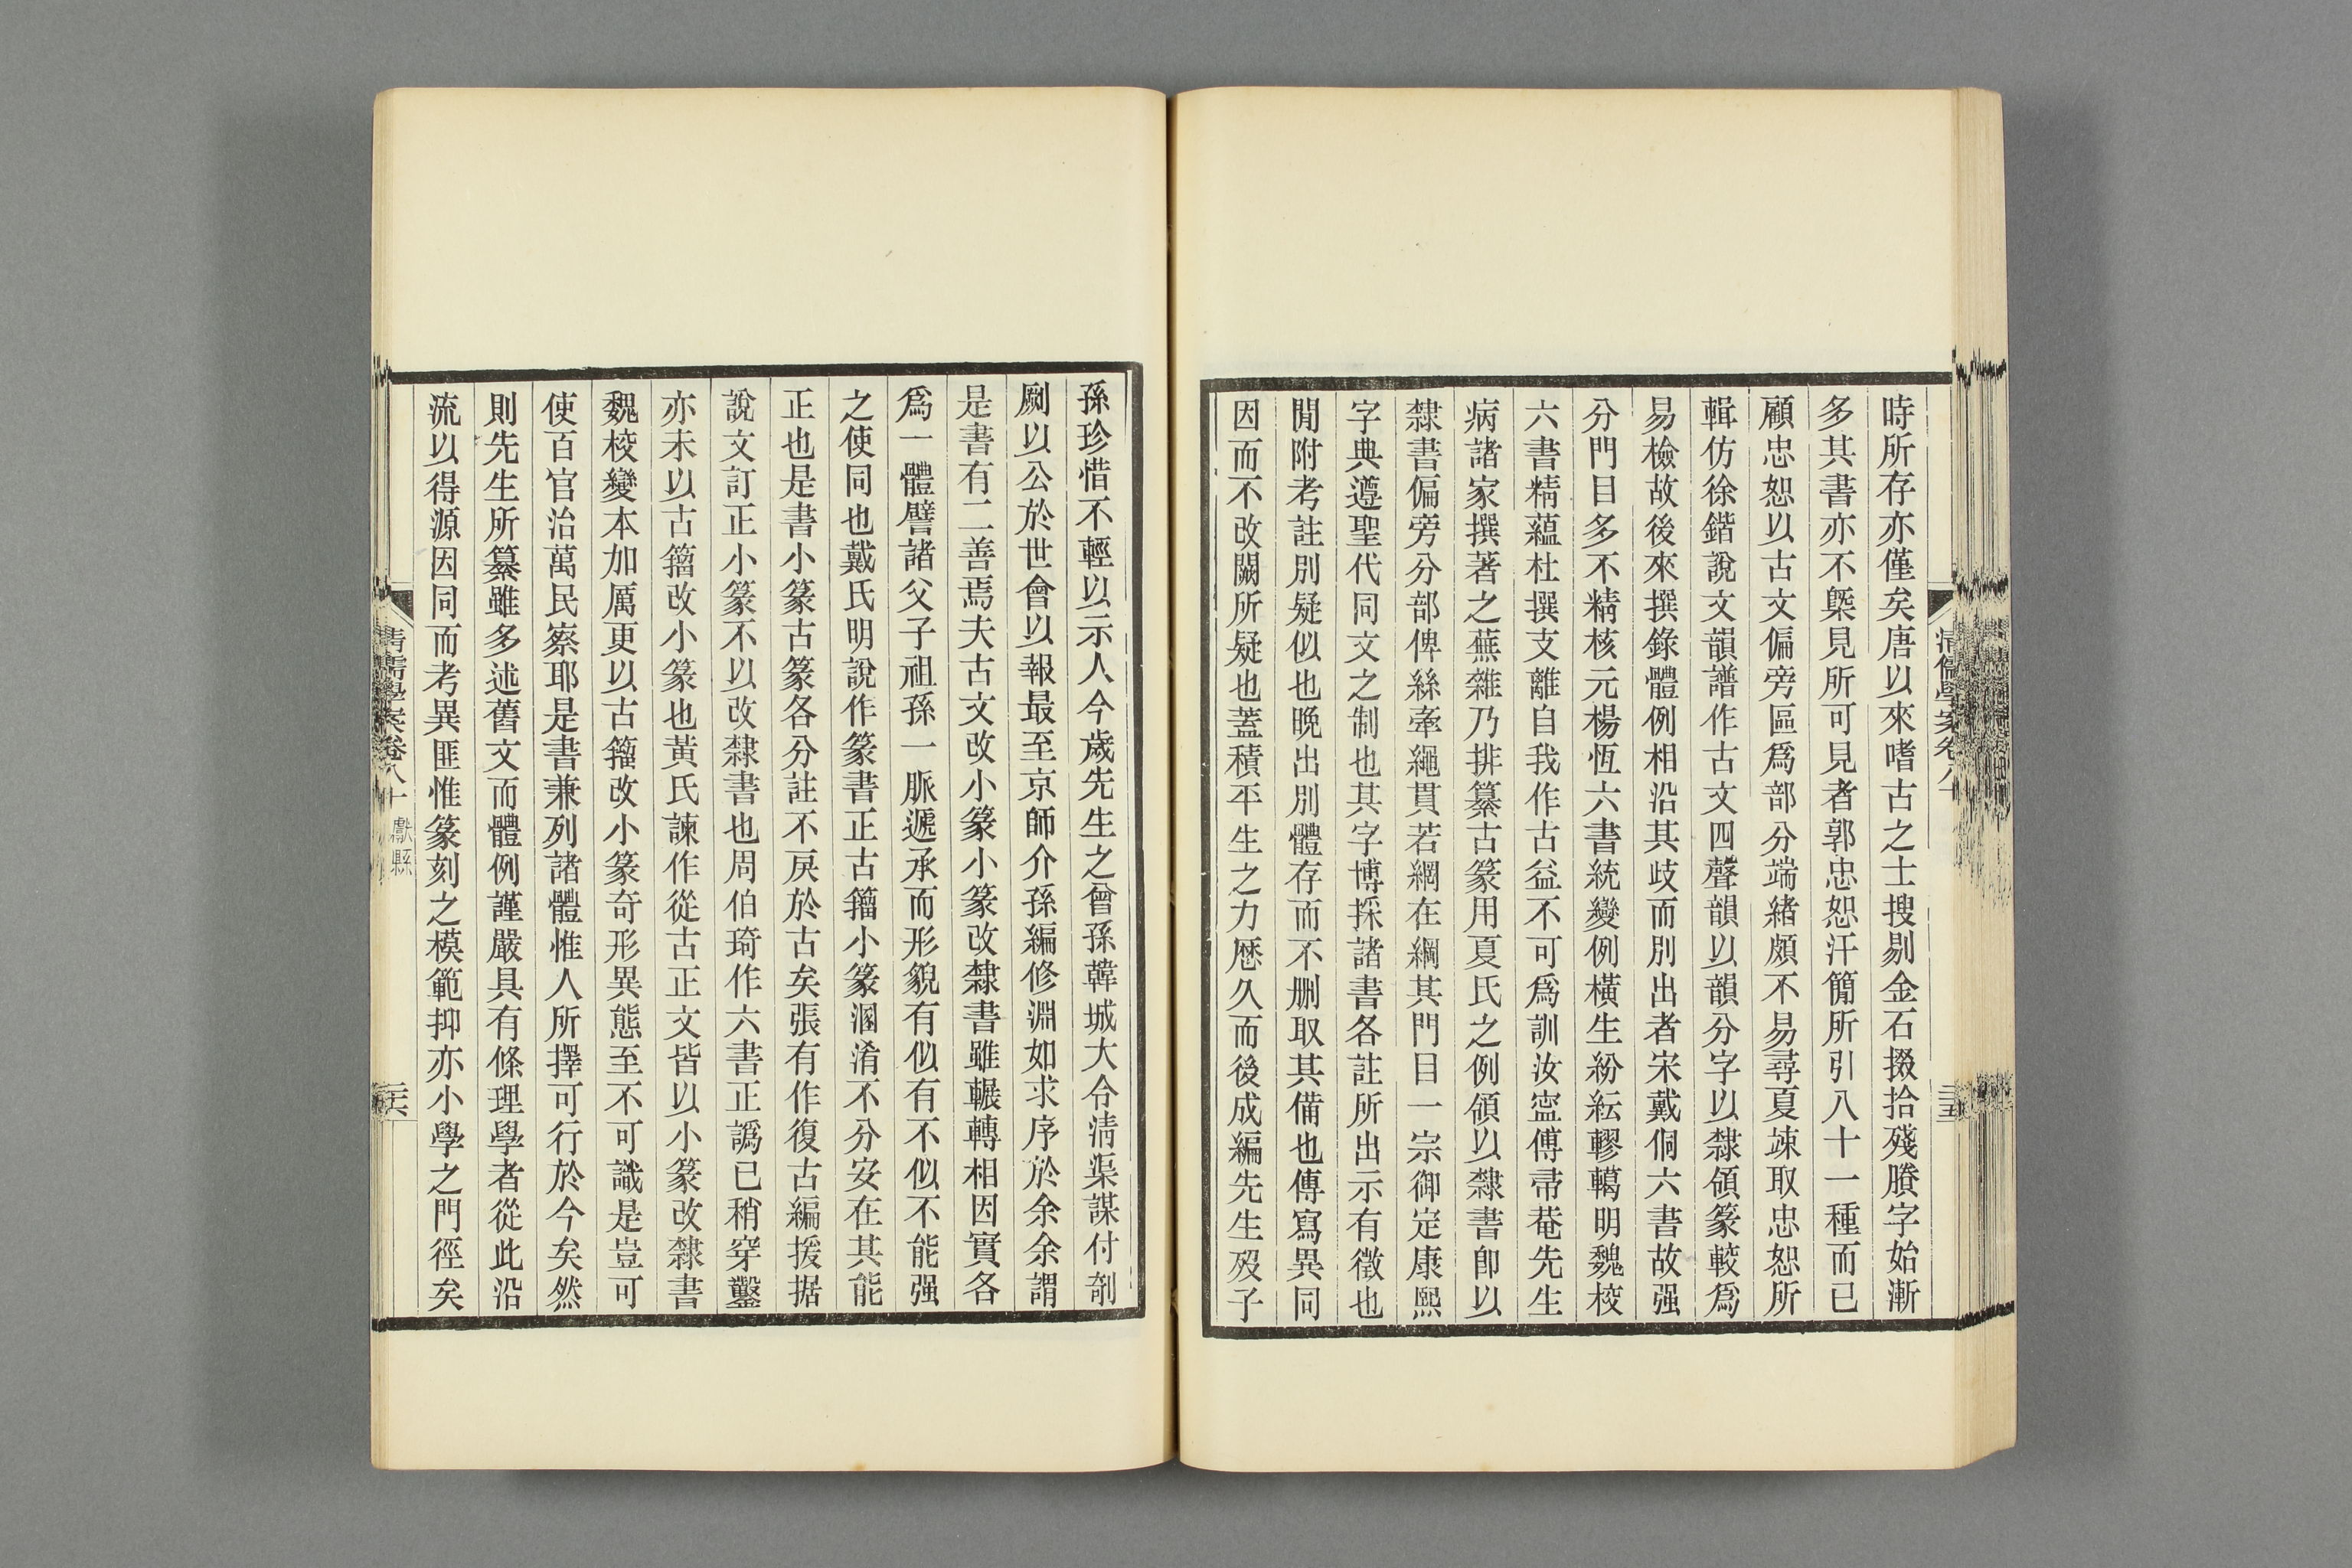 時所存亦僅矣唐以來嗜古之士搜剔金石掇拾殘賸字始漸
多其書亦不槩見所可見者郭忠恕汗簡所引八十一種而已
顧忠恕以古文偏旁區爲部分端緒頗不易尋夏竦取忠恕所
輯仿徐鍇說文韻譜作古文四聲韻以韻分字以隸領篆較爲
易檢故後來撰錄體例相沿其歧而別出者宋戴侗六書故强
分門目多不精核元楊恆六書統變例橫生紛紜轇轕明魏校
六書精蘊杜撰支離自我作古益不可爲訓汝寍傅帚菴先生
病諸家撰著之蕪雜乃排纂古篆用夏氏之例領以隸書卽以
隸書偏旁分部俾絲牽繩貫若網在綱其門目一宗御定康熙
字典遵聖代同文之制也其字博採諸書各註所出示有徵也
閒附考註別疑似也晚出別體存而不刪取其備也傳寫異同
因而不改闕所疑也蓋積平生之力歷久而後成編先生歿子
清儒學案卷八十
三五
孫珍惜不輕以示人今歲先生之曾孫韓城大令淸渠謀付剞
劂以公於世會以報最至京師介孫編修淵如求序於余余謂
是書有二善焉夫古文改小篆小篆改隸書雖輾轉相因實各
爲一體譬諸父子祖孫一脈遞承而形貌有似有不似不能强
之使同也戴氏明說作篆書正古籀小篆溷淆不分安在其能
正也是書小篆古篆各分註不戾於古矣張有作復古編援据
說文訂正小篆不以改隸書也周伯琦作六書正譌已稍穿鑿
亦未以古籀改小篆也黃氏諫作從古正文皆以小篆改隸書
魏校變本加厲更以古籀改小篆奇形異態至不可識是豈可
使百官治萬民察耶是書兼列諸體惟人所擇可行於今矣然
則先生所纂雖多述舊文而體例謹嚴具有條理學者從此沿
流以得源因同而考異匪惟篆刻之模範抑亦小學之門徑矣
清儒學案卷八十 獻縣
三六